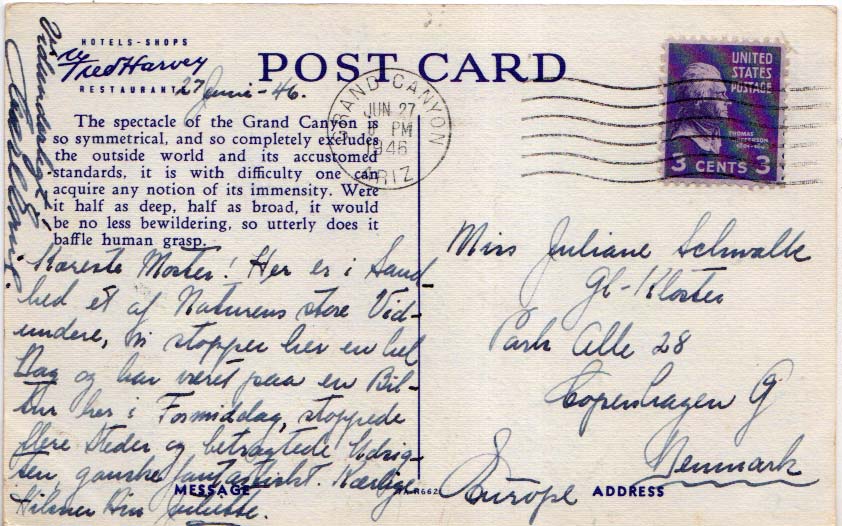 HOTELS-SHOPS
Fred Harvey
RESTAURANTS
POST CARD
27 Juni-46.
GRAND CANYON
JUN 27
PM
1946
ARIZ
UNITED
STATES
POSTAGE
THOMAS
JEFFERSON
3 CENTS 3
The spectacle of the Grand Canyon is
so symmetrical, and so completely excludes
the outside world and its accustomed
standards, it is with difficulty one can
acquire any notion of its immensity. Were
it half as deep, half as broad, it would
be no less bewildering, so utterly does it
baffle human grasp.
Kæreste Moster! Her er i Sand-
hed et af Naturens store Vid-
undere, vi stopper her en hel
Dag og har været paa en Bil-
tur her i Formiddag, stoppede
flere Steder og betragtede Udsig-
ten, ganske fantastisk. Kærlige
Hilsner Din Juliette.
MESSAGE
Miss Juliane Schwalk
Gl-Kloster
Park Alle 28
Copenhagen
Denmark
Europe
ADDRESS